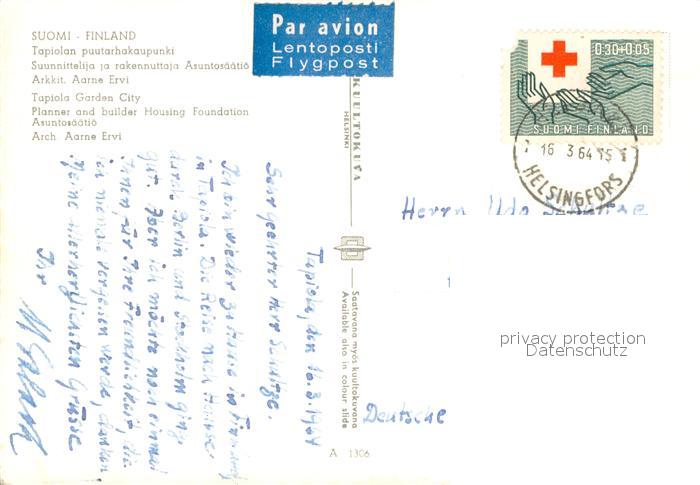 SUOMI - FINLAND
Tapiolan puutarhakaupunki
Suunnittelija ja rakennuttaja Asuntosäätiö
Arkkit. Aarne Ervi
Tapiola Garden City
Planner and builder Housing Foundation
Asuntosäätiö
Arch. Aarne Ervi
Par avion
Lentoposti
Flygpost
KUULTOKUVA
HELSINKI
0,30+0,05
SUOMI FINLAND
16 3 64 15
HELSINGFORS
Tapiola, den 16.3.1964
Sehr geehrter Herr Schultze.
Ich bin wieder zu Hause in Finnland
in Tapiola. Die Reise nach Hause
durch Berlin und Stockholm ging
gut. Aber ich möchte noch einmal
Ihnen für Ihre Freundlichkeit, die
ich niemals vergessen werde, danken
Meine allerherzlichsten Grüsse
Ihr
Herrn Udo
Deutsche
Saatavana myös kuultokuvana
Available also in colour slide
A 1306
privacy protection
Datenschutz